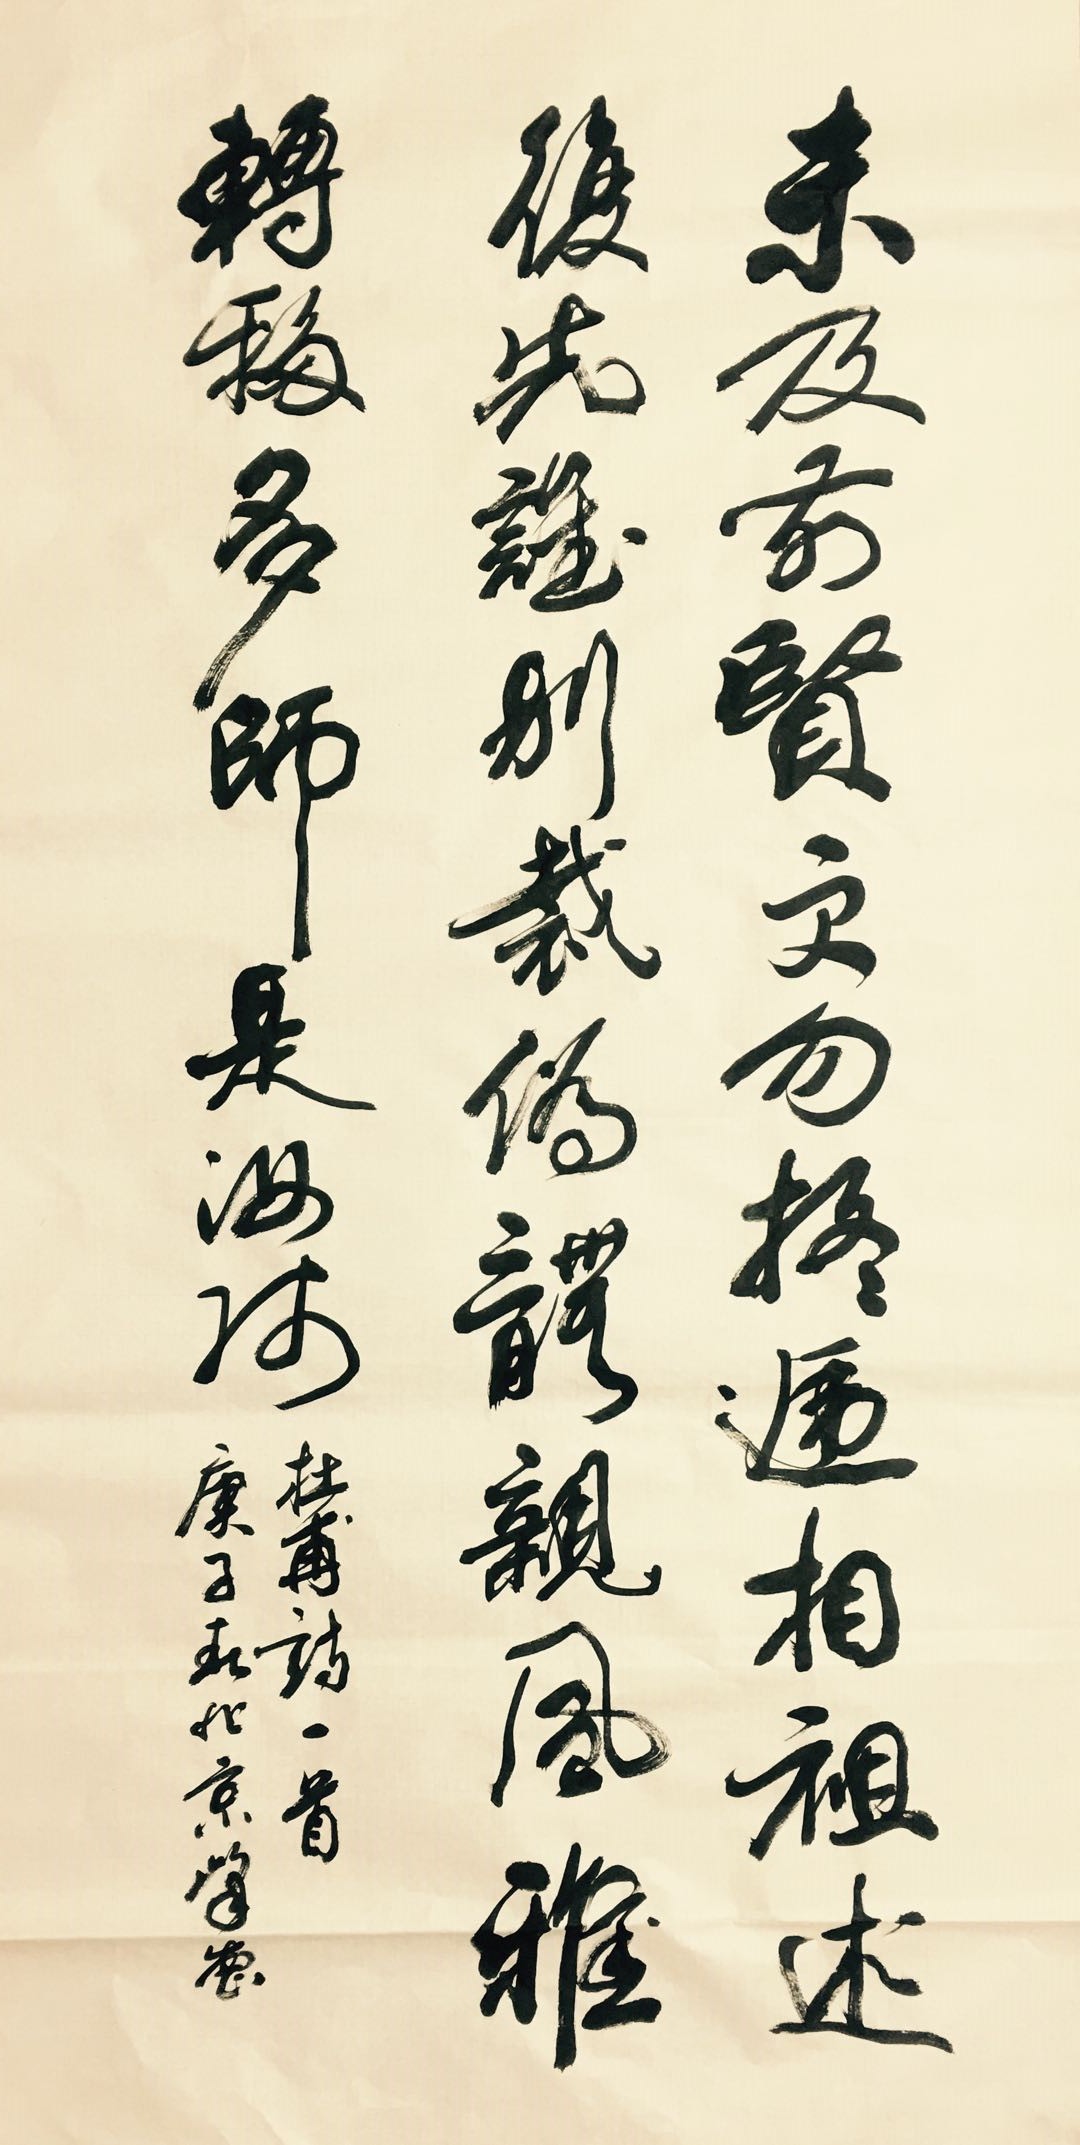 未及前賢更勿疑遞相祖述
復先誰別裁偽體親風雅
轉移多師是汝師
杜甫詩一首
庚子春北京